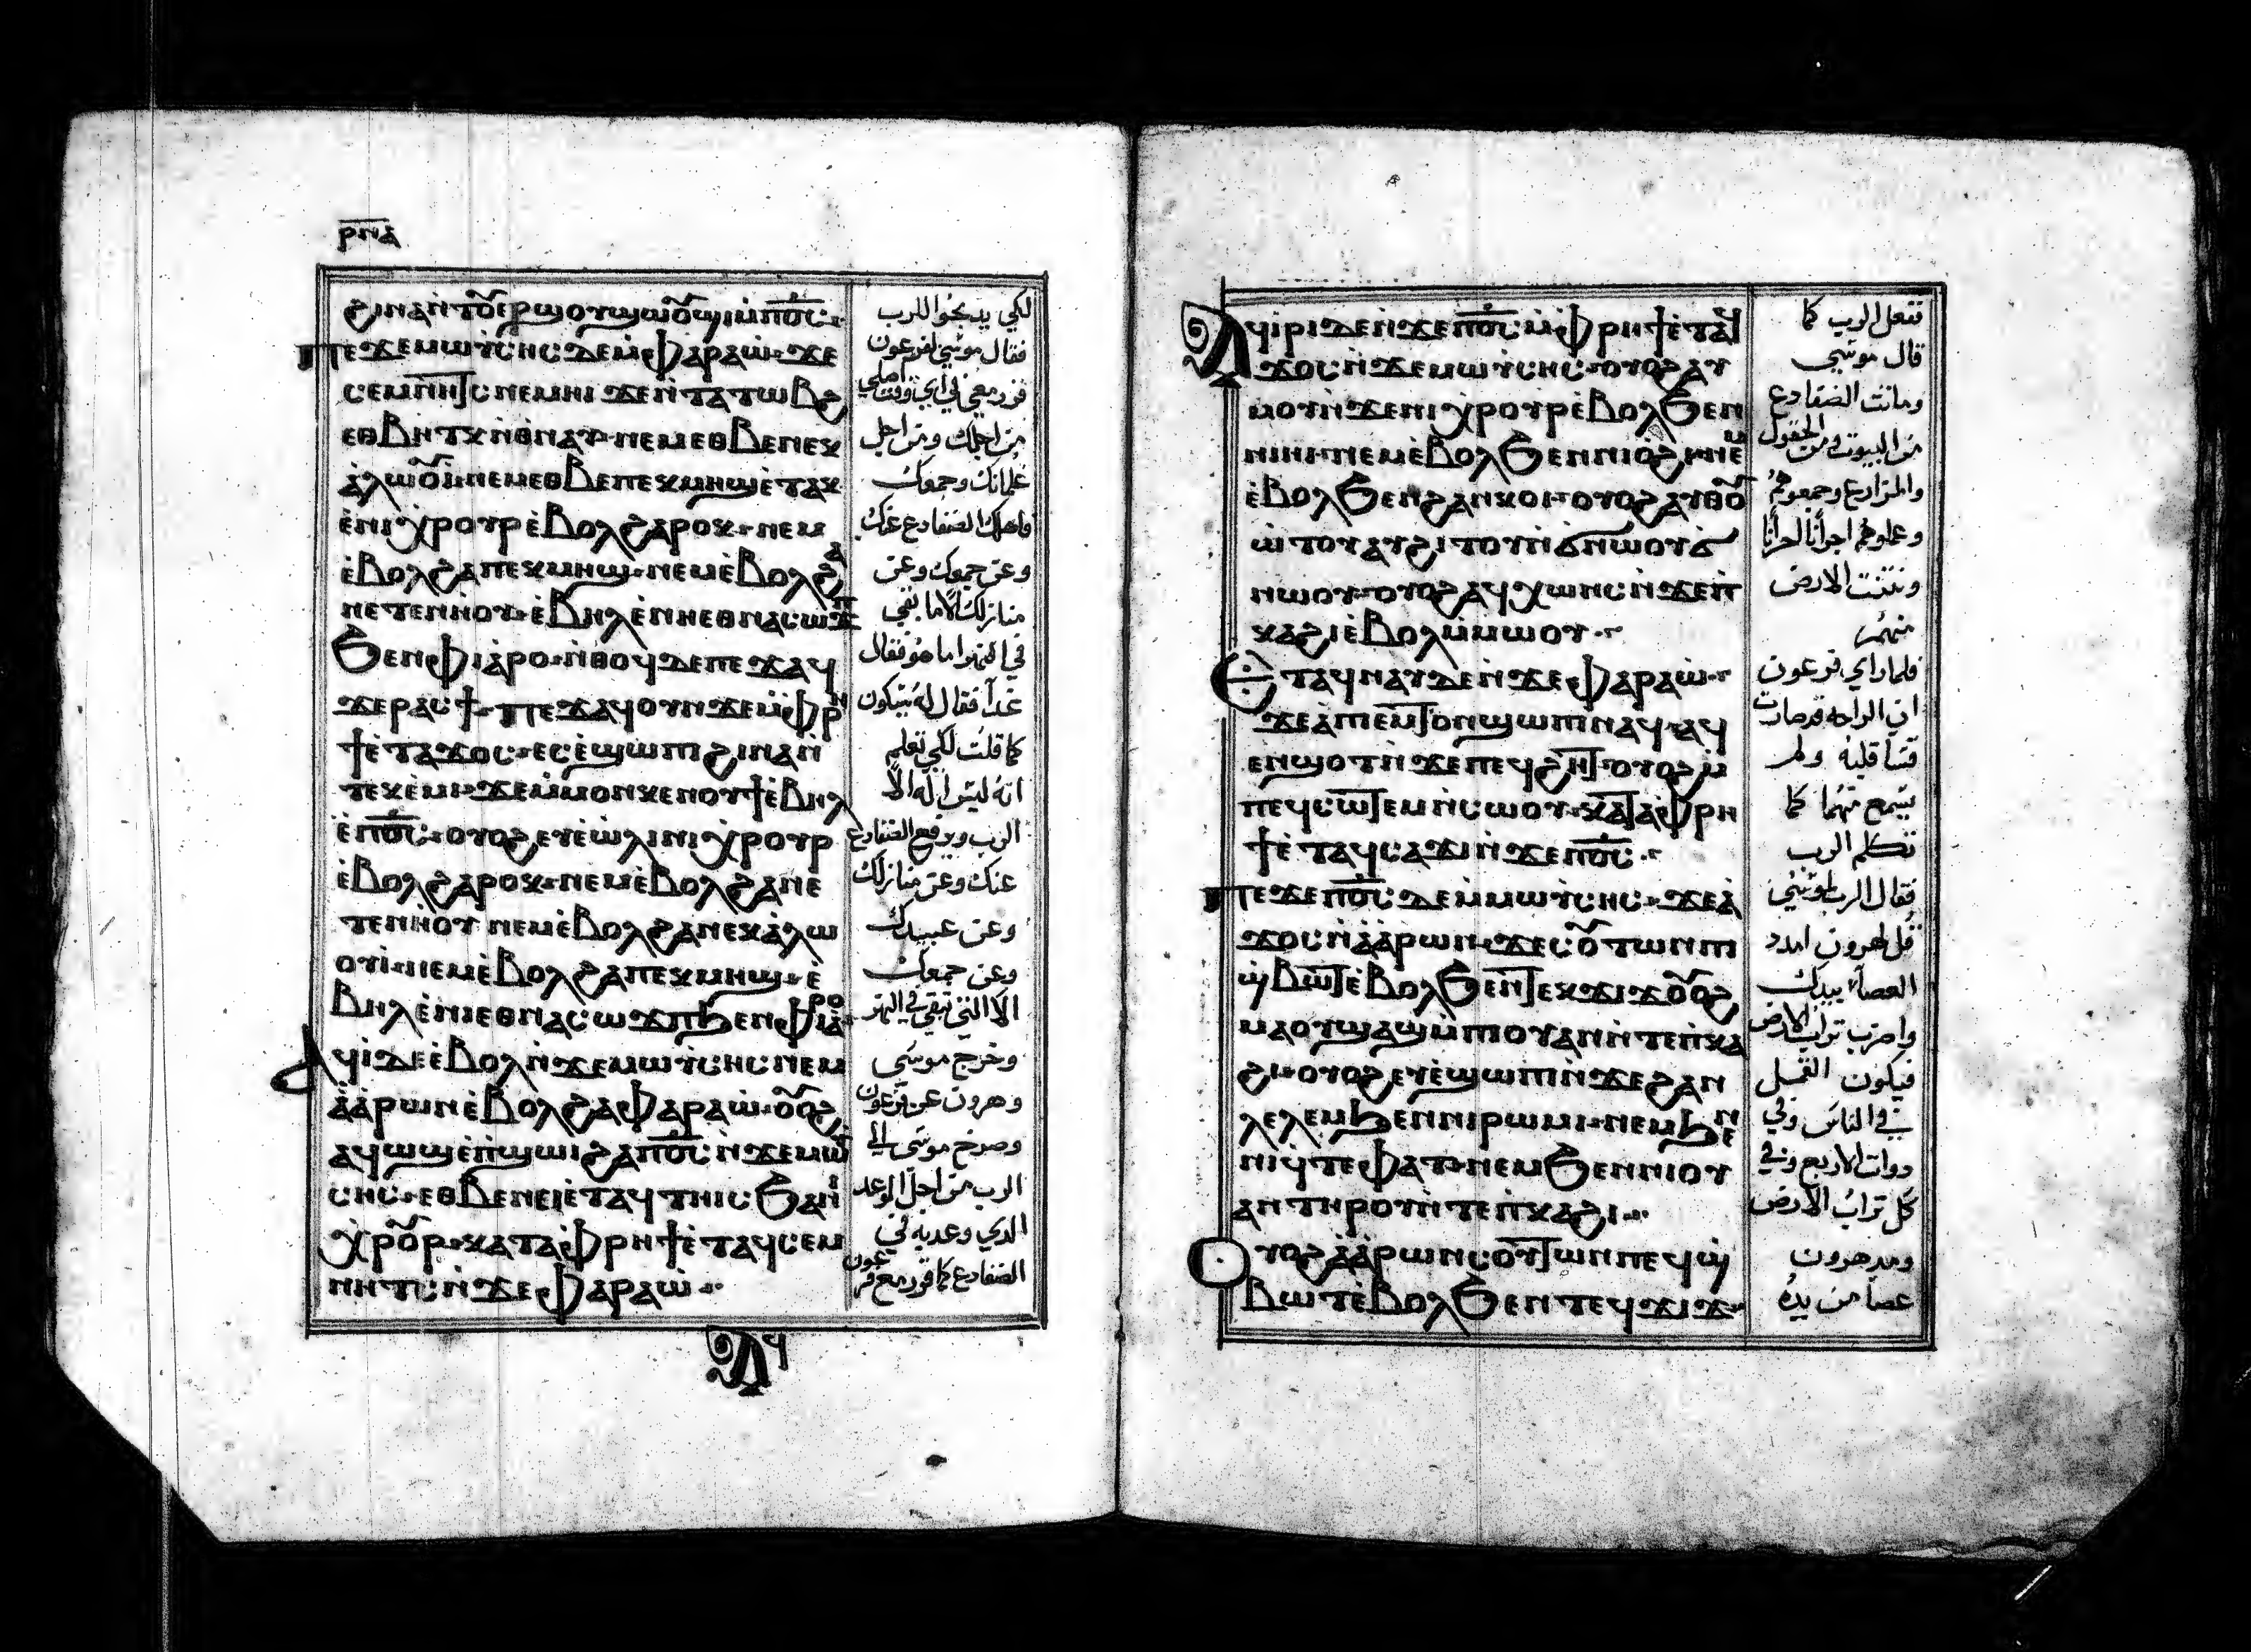 ⲣⲛⲁ
ϩⲓⲛⲁ ⲛ̀ⲧⲟⲩⲉⲣϣⲟⲩϣⲱⲟⲩϣⲓ ⲙ̀ⲡⲟ̅ⲥ̅
ⲡⲉϫⲉ ⲙⲱⲩ̀ⲥⲏⲥ ⲇⲉ ⲙ̀ⲫⲁⲣⲁⲱ̀ ϫⲉ
ⲥⲉⲙⲛⲏⲧⲥ ⲛⲉⲙⲏⲓ ϫⲉ ⲛ̀ⲧⲁⲧⲱⲃϩ
ⲉⲑⲃⲏⲧⲕ ⲛ̀ⲑⲛⲁⲩ ⲛⲉⲙ ⲉⲑⲃⲉ ⲛⲉⲕ
ⲁ̀ⲗⲱⲟⲩⲓ̀ ⲛⲉⲙ ⲉⲑⲃⲉ ⲡⲉⲕⲙⲏϣ ⲉ̀ⲧⲁⲕⲉ
ⲉ̀ⲛⲓⲭⲣⲟⲩⲣ ⲉ̀ⲃⲟⲗ ϩⲁⲣⲟⲕ ⲛⲉⲙ
ⲉ̀ⲃⲟⲗ ϩⲁ ⲡⲉⲕⲙⲏϣ ⲛⲉⲙ ⲉ̀ⲃⲟⲗ ϩⲁ
ⲛⲉⲧⲉⲛⲏⲟⲩ ⲉ̀ⲃⲏⲗ ⲉ̀ⲛⲏ ⲉⲑⲛⲁⲥⲱϫⲡ
ϧⲉⲛ ⲫⲓⲁⲣⲟ ⲛ̀ⲑⲟϥ ⲇⲉ ⲡⲉϫⲁϥ
ϫⲉ ⲣⲁⲥϯ ⲡⲉϫⲁϥ ⲟⲩⲛ ϫⲉ ⲙ̀ⲫⲣⲏ
ϯ ⲉ̀ⲧⲁϫⲟⲥ ⲉⲥⲉ̀ϣⲱⲡⲓ ϩⲓⲛⲁ ⲛ̀
ⲧⲉⲕⲉ̀ⲙⲓ ϫⲉ ⲙ̀ⲙⲟⲛ ⲕⲉⲛⲟⲩϯ ⲉ̀ⲃⲏⲗ
ⲉ̀ⲡⲟ̅ⲥ̅ ⲟⲩⲟϩ ⲉⲩⲉ̀ⲱ̀ⲗⲓ ⲛⲓⲭⲣⲟⲩⲣ
ⲉ̀ⲃⲟⲗ ϩⲁⲣⲟⲕ ⲛⲉⲙ ⲉ̀ⲃⲟⲗ ϩⲁ ⲛⲉ
ⲧⲉⲛⲏⲟⲩ ⲛⲉⲙ ⲉ̀ⲃⲟⲗ ϩⲁ ⲛⲉⲕⲁ̀ⲗⲱ
ⲟⲩⲓ̀ ⲛⲉⲙ ⲉ̀ⲃⲟⲗ ϩⲁ ⲡⲉⲕⲙⲏϣ ⲉ̀
ⲃⲏⲗ ⲉ̀ⲛⲓ ⲉⲑⲛⲁⲥⲱϫⲡ ϧⲉⲛ ⲫⲓⲁⲣⲟ
ⲁϥⲓ̀ ⲇⲉ ⲉ̀ⲃⲟⲗ ⲛ̀ϫⲉ ⲙⲱⲩ̀ⲥⲏⲥ ⲛⲉⲙ
ⲁ̀ⲁ̀ⲣⲱⲛ ⲉ̀ⲃⲟⲗ ϩⲁ ⲫⲁⲣⲁⲱ̀ ⲟⲩⲟϩ
ⲁϥⲱϣ ⲉ̀ⲡϣⲱⲓ ϩⲁ ⲡⲟ̅ⲥ̅ ⲛ̀ϫⲉ ⲙⲱⲩ̀
ⲥⲏⲥ ⲉⲑⲃⲉ
ⲭⲣⲟⲩⲣ ⲕⲁⲧⲁ ⲫⲣⲏϯ ⲉ̀ⲧⲁϥⲥⲉⲙ
ⲛⲏⲧⲥ ⲛ̀ϫⲉ ⲫⲁⲣⲁⲱ̀
ⲁϥ
لكي يدبحوا للرب
فقال موسي لفرعون
من اجلك ومن اجل
غلمانك وجمعك
واهلك الضفادع عنك
وعن جموعك وعن
منازلك الا ما بقي
في النهر اما هو فقال
غداً فقال له يتكون
كما قلت لكي تعلم
انه ليس اله الا
الرب ويرفع الضفادع
عنك وعن منازلك
وعن عبيدك
وعن جمعك
الا التي تبقي في النهر
وخرج موسى
وهرون عن فرعون
وصرخ موسى الي
الرب من اجل الوعد
الدي وعد به في
ⲁϥⲓ̀ⲣⲓ ⲇⲉ ⲛ̀ϫⲉ ⲡⲟ̅ⲥ̅ ⲙ̀ⲫⲣⲏϯ ⲉ̀ⲧⲁϥ
ϫⲟⲥ ⲛ̀ϫⲉ ⲙⲱⲩ̀ⲥⲏⲥ ⲟⲩⲟϩ ⲁⲩ
ⲙⲟⲩ ⲛ̀ϫⲉ ⲛⲓⲭⲣⲟⲩⲣ ⲉ̀ⲃⲟⲗ ϧⲉⲛ
ⲛⲓⲏⲓ ⲛⲉⲙ ⲉ̀ⲃⲟⲗ ϧⲉⲛ ⲛⲓⲟ̀ϩⲓ ⲛⲉⲙ
ⲉ̀ⲃⲟⲗ ϧⲉⲛ ϩⲁⲛⲕⲟⲓ ⲟⲩⲟϩ ⲁⲩⲑⲟⲩ
ⲱ̀ⲧⲟⲩ ⲁⲩϩⲓⲧⲟⲩ ⲛ̀ⲑⲛⲱⲟⲩ ⲑ
ⲛⲱⲟⲩ ⲟⲩⲟϩ ⲁϥⲭⲱⲛⲥ ⲛ̀ϫⲉ ⲡ
ⲕⲁϩⲓ ⲉ̀ⲃⲟⲗ ⲙ̀ⲙⲱⲟⲩ
ⲉⲧⲁϥⲛⲁⲩ ⲇⲉ ⲛ̀ϫⲉ ⲫⲁⲣⲁⲱ̀
ϫⲉ ⲁ̀ ⲡⲉⲙⲧⲟⲛ ϣⲱⲡⲓ ⲛⲁϥ ⲁϥ
ⲉⲛϣⲟⲧ ⲛ̀ϫⲉ ⲡⲉϥϩⲏⲧ ⲟⲩⲟϩ ⲙ̀
ⲡⲉϥⲥⲱⲧⲉⲙ ⲛ̀ⲥⲱⲟⲩ ⲕⲁⲧⲁ ⲫⲣⲏ
ϯ ⲉ̀ⲧⲁϥⲥⲁϫⲓ ⲛ̀ϫⲉ ⲡⲟ̅ⲥ̅
ⲡⲉϫⲉ ⲡⲟ̅ⲥ̅ ⲇⲉ ⲙ̀ⲙⲱⲩ̀ⲥⲏⲥ ϫⲉ ⲁ̀
ϫⲟⲥ ⲛ̀ⲁ̀ⲁ̀ⲣⲱⲛ ϫⲉ ⲥⲟⲩⲧⲱⲛ ⲡⲓ
ϣ̀ⲃⲱⲧ ⲉ̀ⲃⲟⲗ ϧⲉⲛ ⲧⲉⲕϫⲓϫ ⲟⲩⲟϩ
ⲙⲁⲟⲩϣⲁϣ ⲙ̀ⲡⲓⲟⲩⲁⲛ ⲛ̀ⲧⲉ ⲡⲕⲁ
ϩⲓ ⲟⲩⲟϩ ⲉⲩⲉ̀ϣⲱⲡⲓ ⲛ̀ϫⲉ ϩⲁⲛ
ⲗⲉⲗⲉⲙ ϧⲉⲛ ⲛⲓⲣⲱⲙⲓ ⲛⲉⲙ ϧⲉⲛ
ⲛⲓϥⲧⲉⲫⲁⲧ ⲛⲉⲙ ϧⲉⲛ ⲛⲓⲟⲩ
ⲁⲛ ⲧⲏⲣⲟⲩ ⲛ̀ⲧⲉ ⲡⲕⲁϩⲓ
ⲟⲩⲟϩ ⲁ̀ⲁ̀ⲣⲱⲛ ⲥⲟⲩⲧⲱⲛ ⲡⲉϥϣ̀
ⲃⲱⲧ ⲉ̀ⲃⲟⲗ ϧⲉⲛ ⲧⲉϥϫⲓϫ
ففعل الرب كما
قال موسي
وماتت الضفادع
من البيوت ومن الحقول
والمزارع وجمعوهم
ونتنت الارض
منهم
فلما راي فرعون
ان الراحه قد صارت
قسا قلبه ولم
يسمع منهما كما
تكلم الرب
فقال الرب لموسي
قل لهرون امدد
العصاه بيدك
واضرب تراب الارض
فيكون القمل
في الناس وفي
دوات الاربع وفي
كل تراب الارض
ومد هرون
عصا من يده